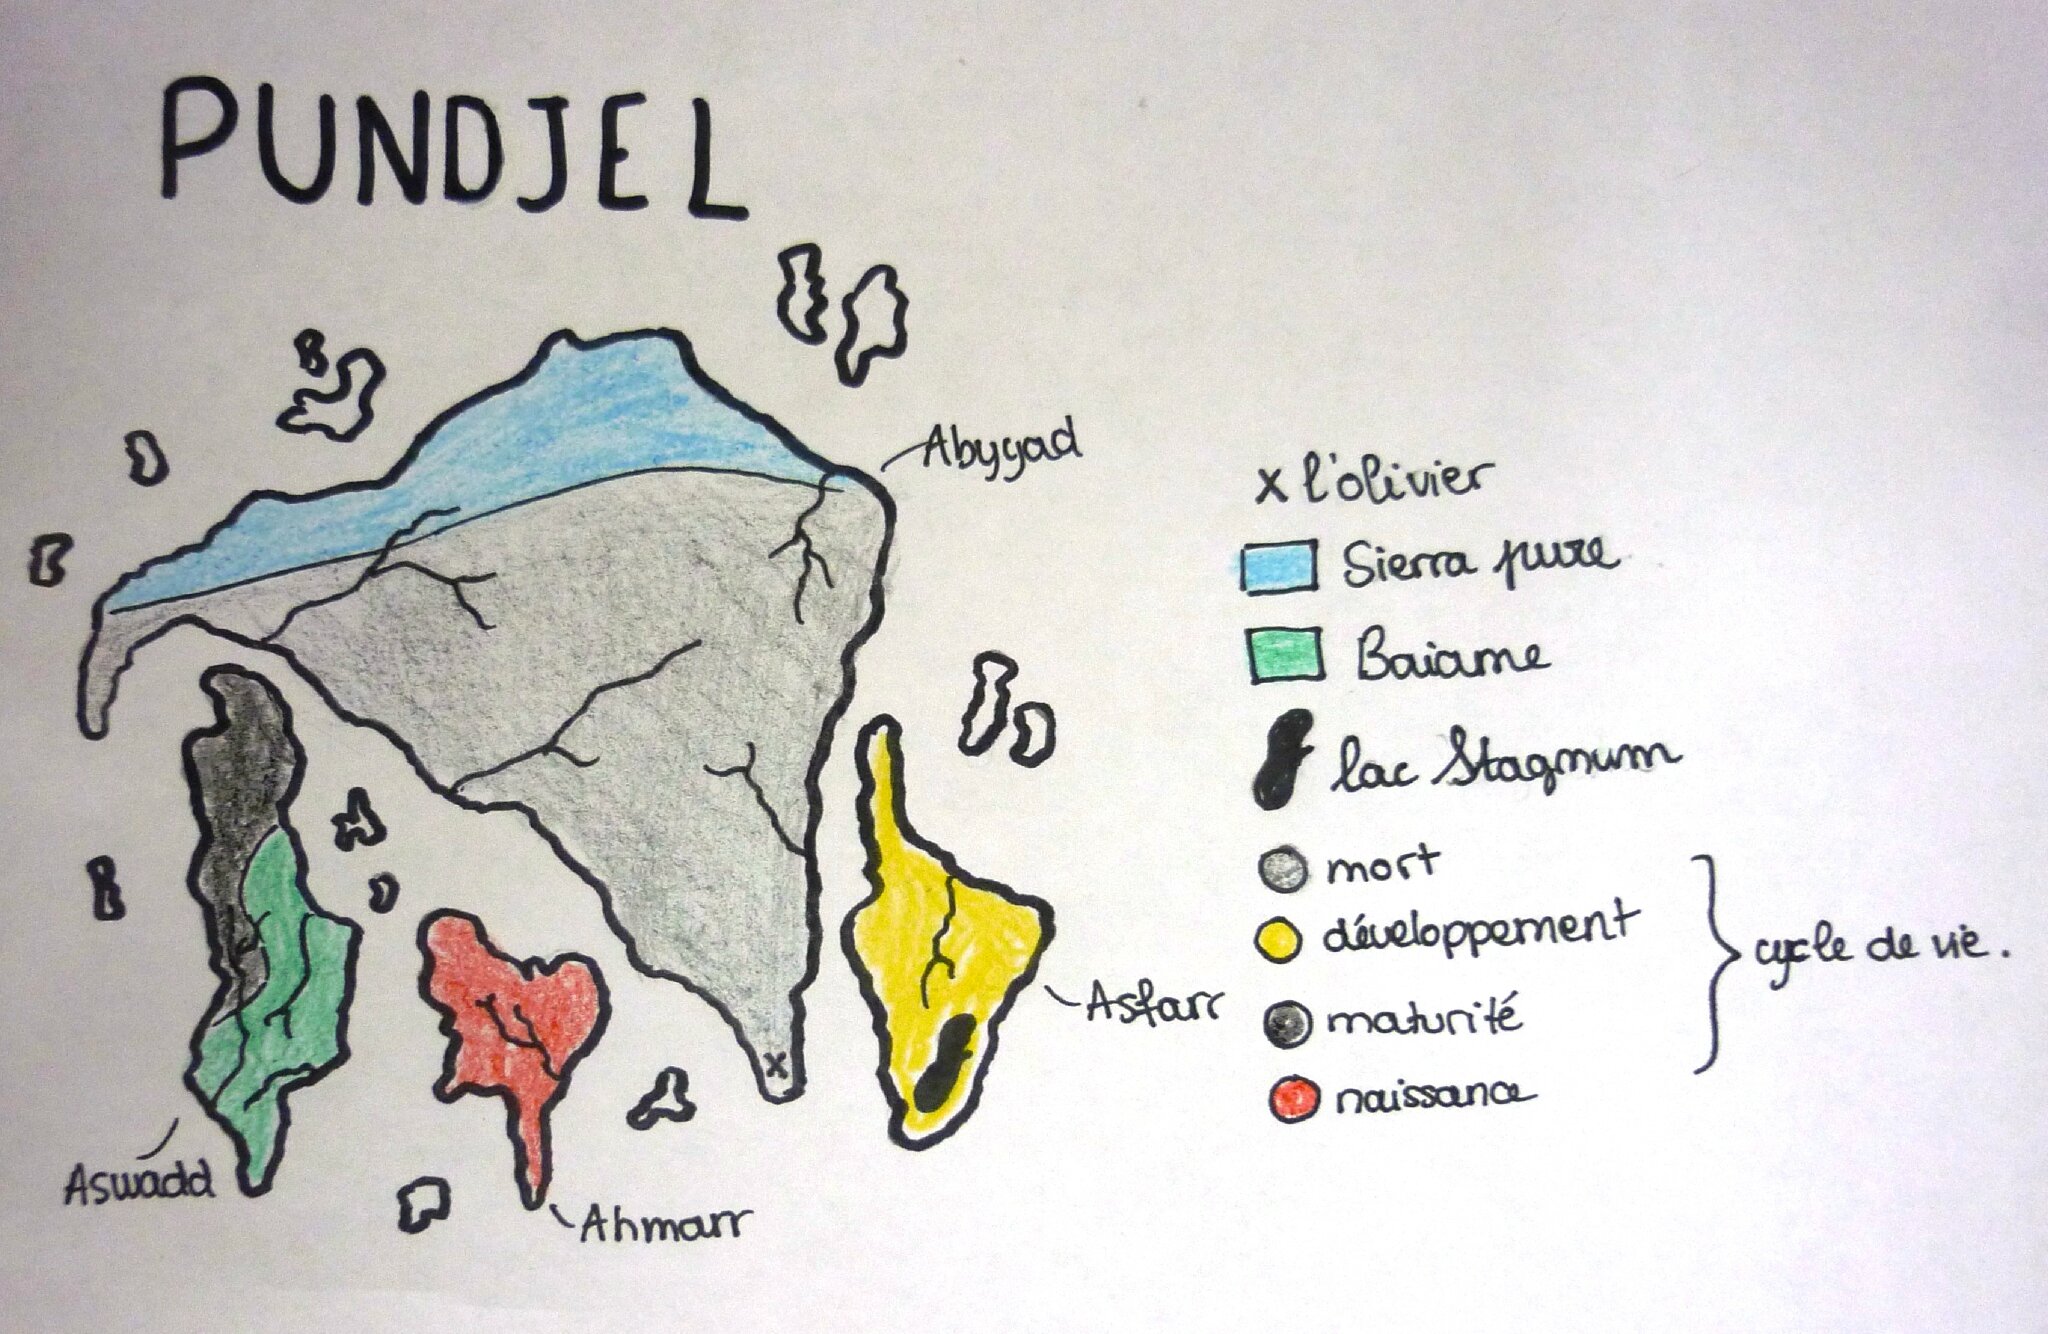 PUNDJEL
Abygad
x l'olivier
Sierra pure
Baiame
lac Stagnum
mort
développement
cycle de vie.
Asfarr
maturité
naissance
x
Aswadd
Ahmarr